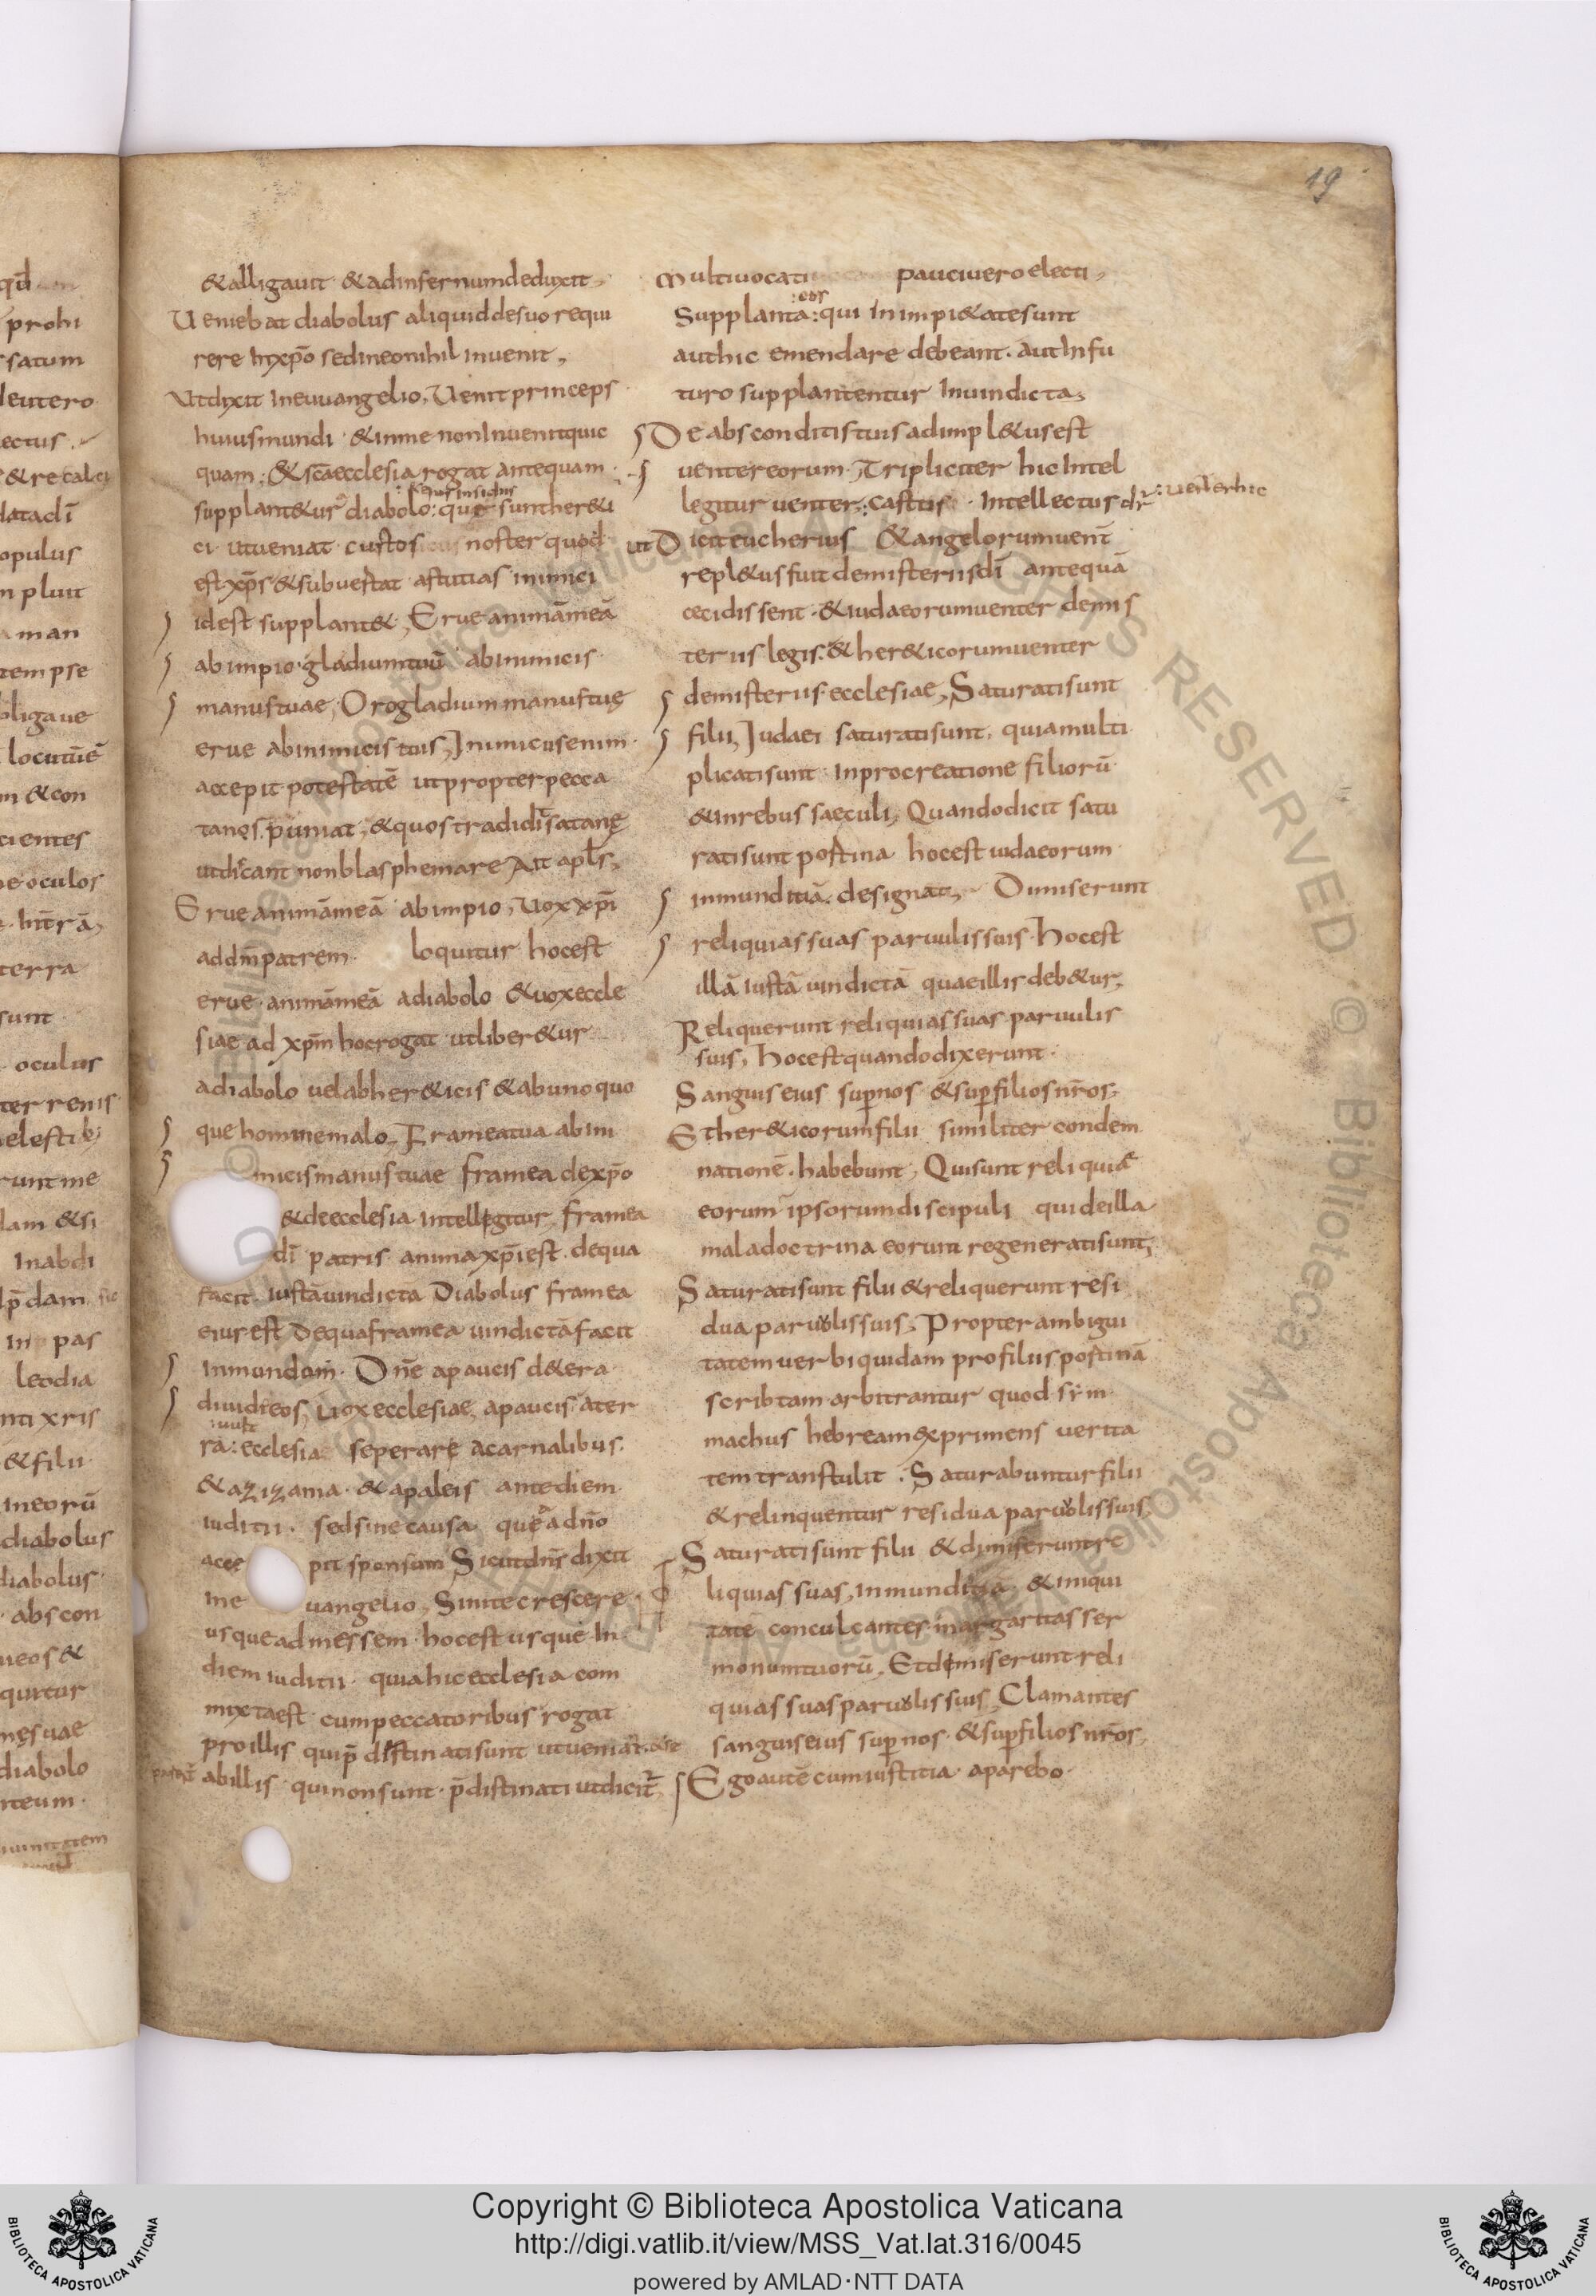 19
& alligauit · & adinfernumdeduxit,
Ueniebat diabolus aliquid de suo requi
rere Inxp̄o sed ineo nihil inuenit,
Utdixit In euuangelio, Uenit princeps
huius mundi · & inme non Inuenit quic
quam; & sc̄a ecclesia rogat antequam
supplant&ur diabolo: que sunt her&i
ci · utueniat custos noster quod
est xp̄s & subuertat astutias inimici
idest supplant&, Erue animā meā
abimpio · gladium tuū abinimicis
manus tuae, Oro gladium manus tuę
erue abinimicis tuis, Inimicus enim
accepit potestatē utpropter pecca
tanos puniat, & quos tradidi satanę
utdicant non blasphemare Ait apl̄s,
Erue animā meā abimpio, Uox xp̄i
ad dm̄ patrem loquitur hoc est
erue animā meā adiabolo & uox eccle
siae ad xp̄m hoc rogat utliber&ur
adiabolo uel abher&icis & ab uno quo
que homine malo, Framea tua ab ini
micis manus tuae framea de xp̄o
& de ecclesia intellegitur, framea
dī patris anima xp̄i est · de qua
facit iustā uindictā Diabolus framea
eius est De qua framea uindictā facit
Inmundum · Dn̄e apaucis d&era
diuideeos, Uox ecclesiae, apaucis ater
:uult
ra: ecclesia seperare acarnalibus
& azizania · & apaleis antediem
iuditii · sed sine causa que adn̄o
acce pit sponsum Sicut dn̄s dixit
ine uangelio, Sinite crescere
usque ad messem · hoc est usque In
diem iuditii · quia hic ecclesia com
mixta est cum peccatoribus rogat
pro illis qui p̄distinati sunt utueniat
abillis · qui non sunt · p̄distinati utdicit
Multi uocati pauci uero electi,
:eos
Supplanta: qui In impi&ate sunt
aut hic emendare debeant · aut Infu
turo supplantentur Inuindicta,
De absconditis tuis adimpl&us est
uenter eorum · Tripliciter hic Intel
legitur uenter,: castus · Intellectus dr̄ :uenter hic
ut Dicit eucherius & angelorum uent̄
repl&us fuit demisteriis dī antequā
cecidissent · & iudaeorum uenter demis
teriis legis · & her&icorum uenter
demisteriis ecclesiae, Saturati sunt
filii, Iudaei saturati sunt, quia multi
plicati sunt · Inprocreatione filiorū
& inrebus saeculi, Quando dicit satu
rati sunt postina hoc est iudaeorum
inmunditiā · designat, Dimiserunt
reliquias suas paruulis suis · Hoc est
illā iustā uindictā quae illis deb&ur,
Reliquerunt reliquias suas paruulis
suis, Hoc est quando dixerunt ·
Sanguis eius sup̄ nos · & sup̄ filios nr̄os,
Et her&icorum filii similiter condem
nationē · habebunt, Qui sunt reliquiae
eorum ipsorum discipuli qui de illa
mala doctrina eorum regenerati sunt,
Saturati sunt filii & reliquerunt resi
dua paruolis suis, Propter ambigui
tatem uerbi quidam pro filiis postinā
scribtam arbitrantur quod sym
machus hebream exprimens uerita
tem transtulit · Saturabuntur filii
& relinquentur residua paruolis suis,
Saturati sunt filii & dimiserunt re
liquias suas, Inmunditia & iniqui
tatē conculcantes margaritas ser
monum tuorū, Et dimiserunt reli
quias suas paruolis suis, Clamantes
sanguis eius sup̄ nos · & sup̄ filios nr̄os,
Ego autē cum iustitia · aparebo ·
Copyright © Biblioteca Apostolica Vaticana
http://digi.vatlib.it/view/MSS_Vat.lat.316/0045
powered by AMLAD·NTT DATA
BIBLIOTECA APOSTOLICA VATICANA
BIBLIOTECA APOSTOLICA VATICANA